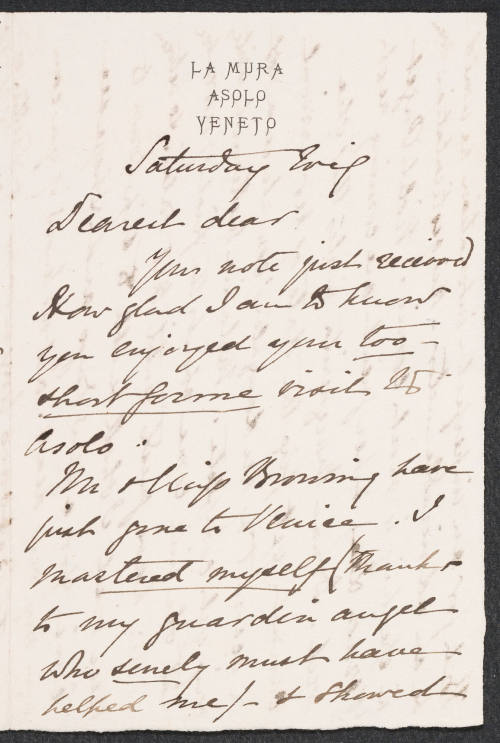 LA MURA
ASOLO
VENETO
Saturday Evig
Dearest dear
Your note just received
How glad I am to know
you enjoyed your too-
short for me visit to
Asolo.
Mr & Miss Browning have
just gone to Venice. I
mastered myself (Thanks
to my guardin angel
who surely must have
helped me) - & showed